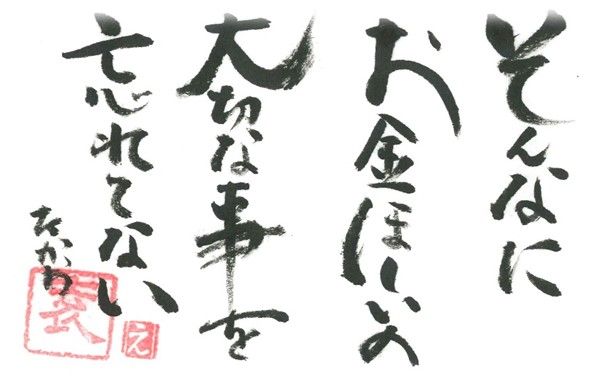 そんなに
お金ほしいの
大切な事を
忘れてない
たかの
え